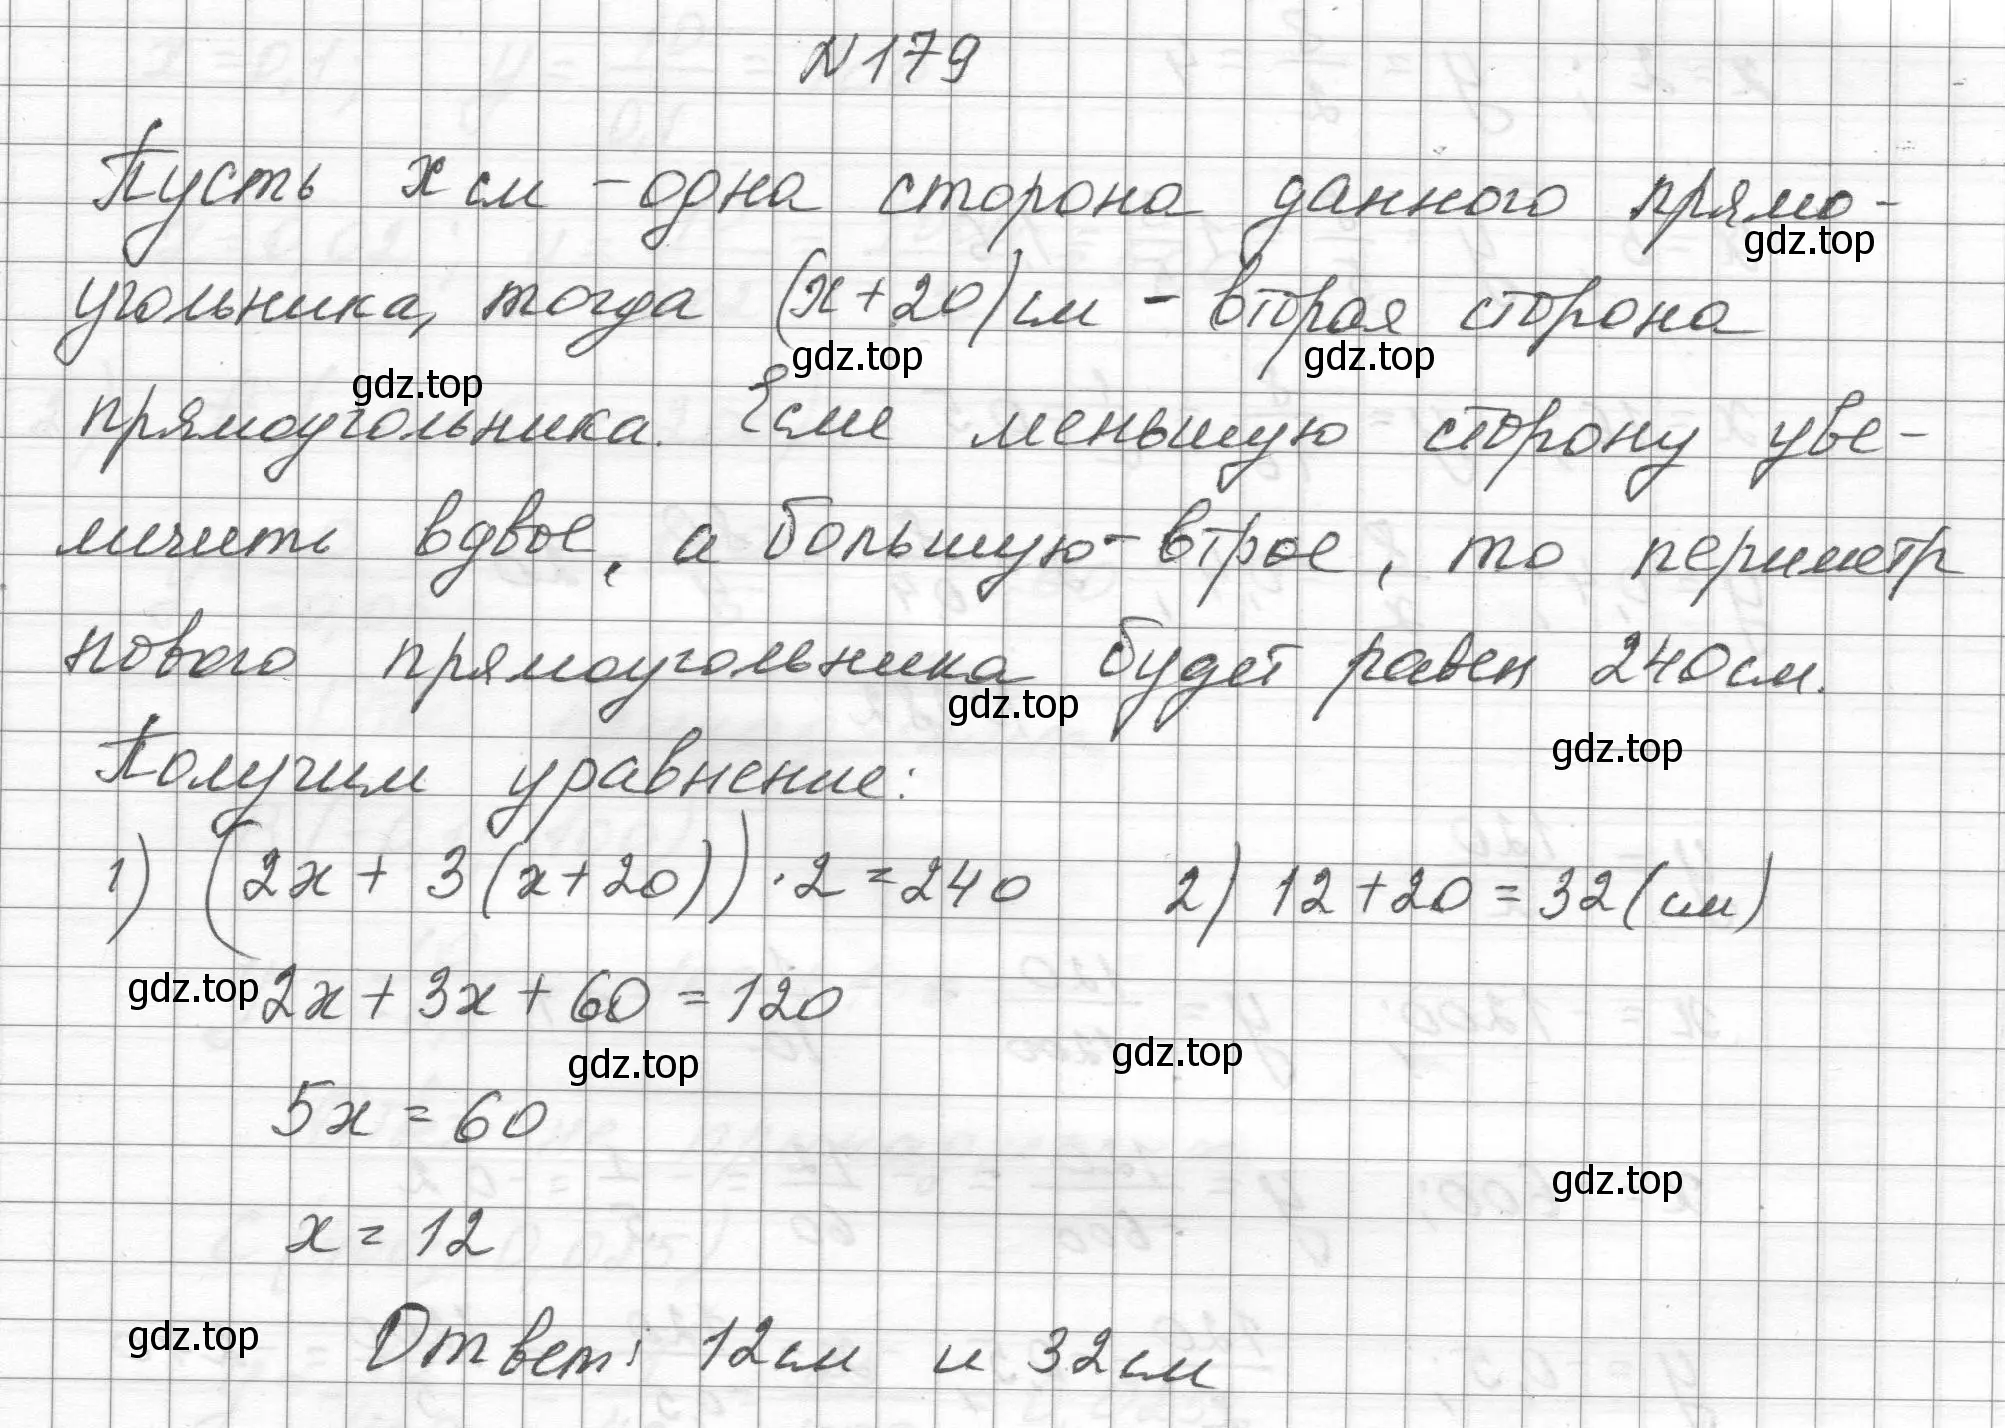 N 179
Пусть x см - одна сторона данного прямо-
gdz.top
угольника, тогда (x+20) см - вторая сторона
gdz.top gdz.top
gdz.top
прямоугольника. Если меньшую сторону уве-
личить вдвое, а большую - втрое, то периметр
нового прямоугольника будет равен 240 см.
gdz.top
gdz.top
Получим уравнение:
1) (2x + 3(x+20)) · 2 = 240 2) 12 + 20 = 32 (см)
gdz.top 2x + 3x + 60 = 120
gdz.top gdz.top
5x = 60
gdz.top
x = 12
gdz.top Ответ: 12 см и 32 см